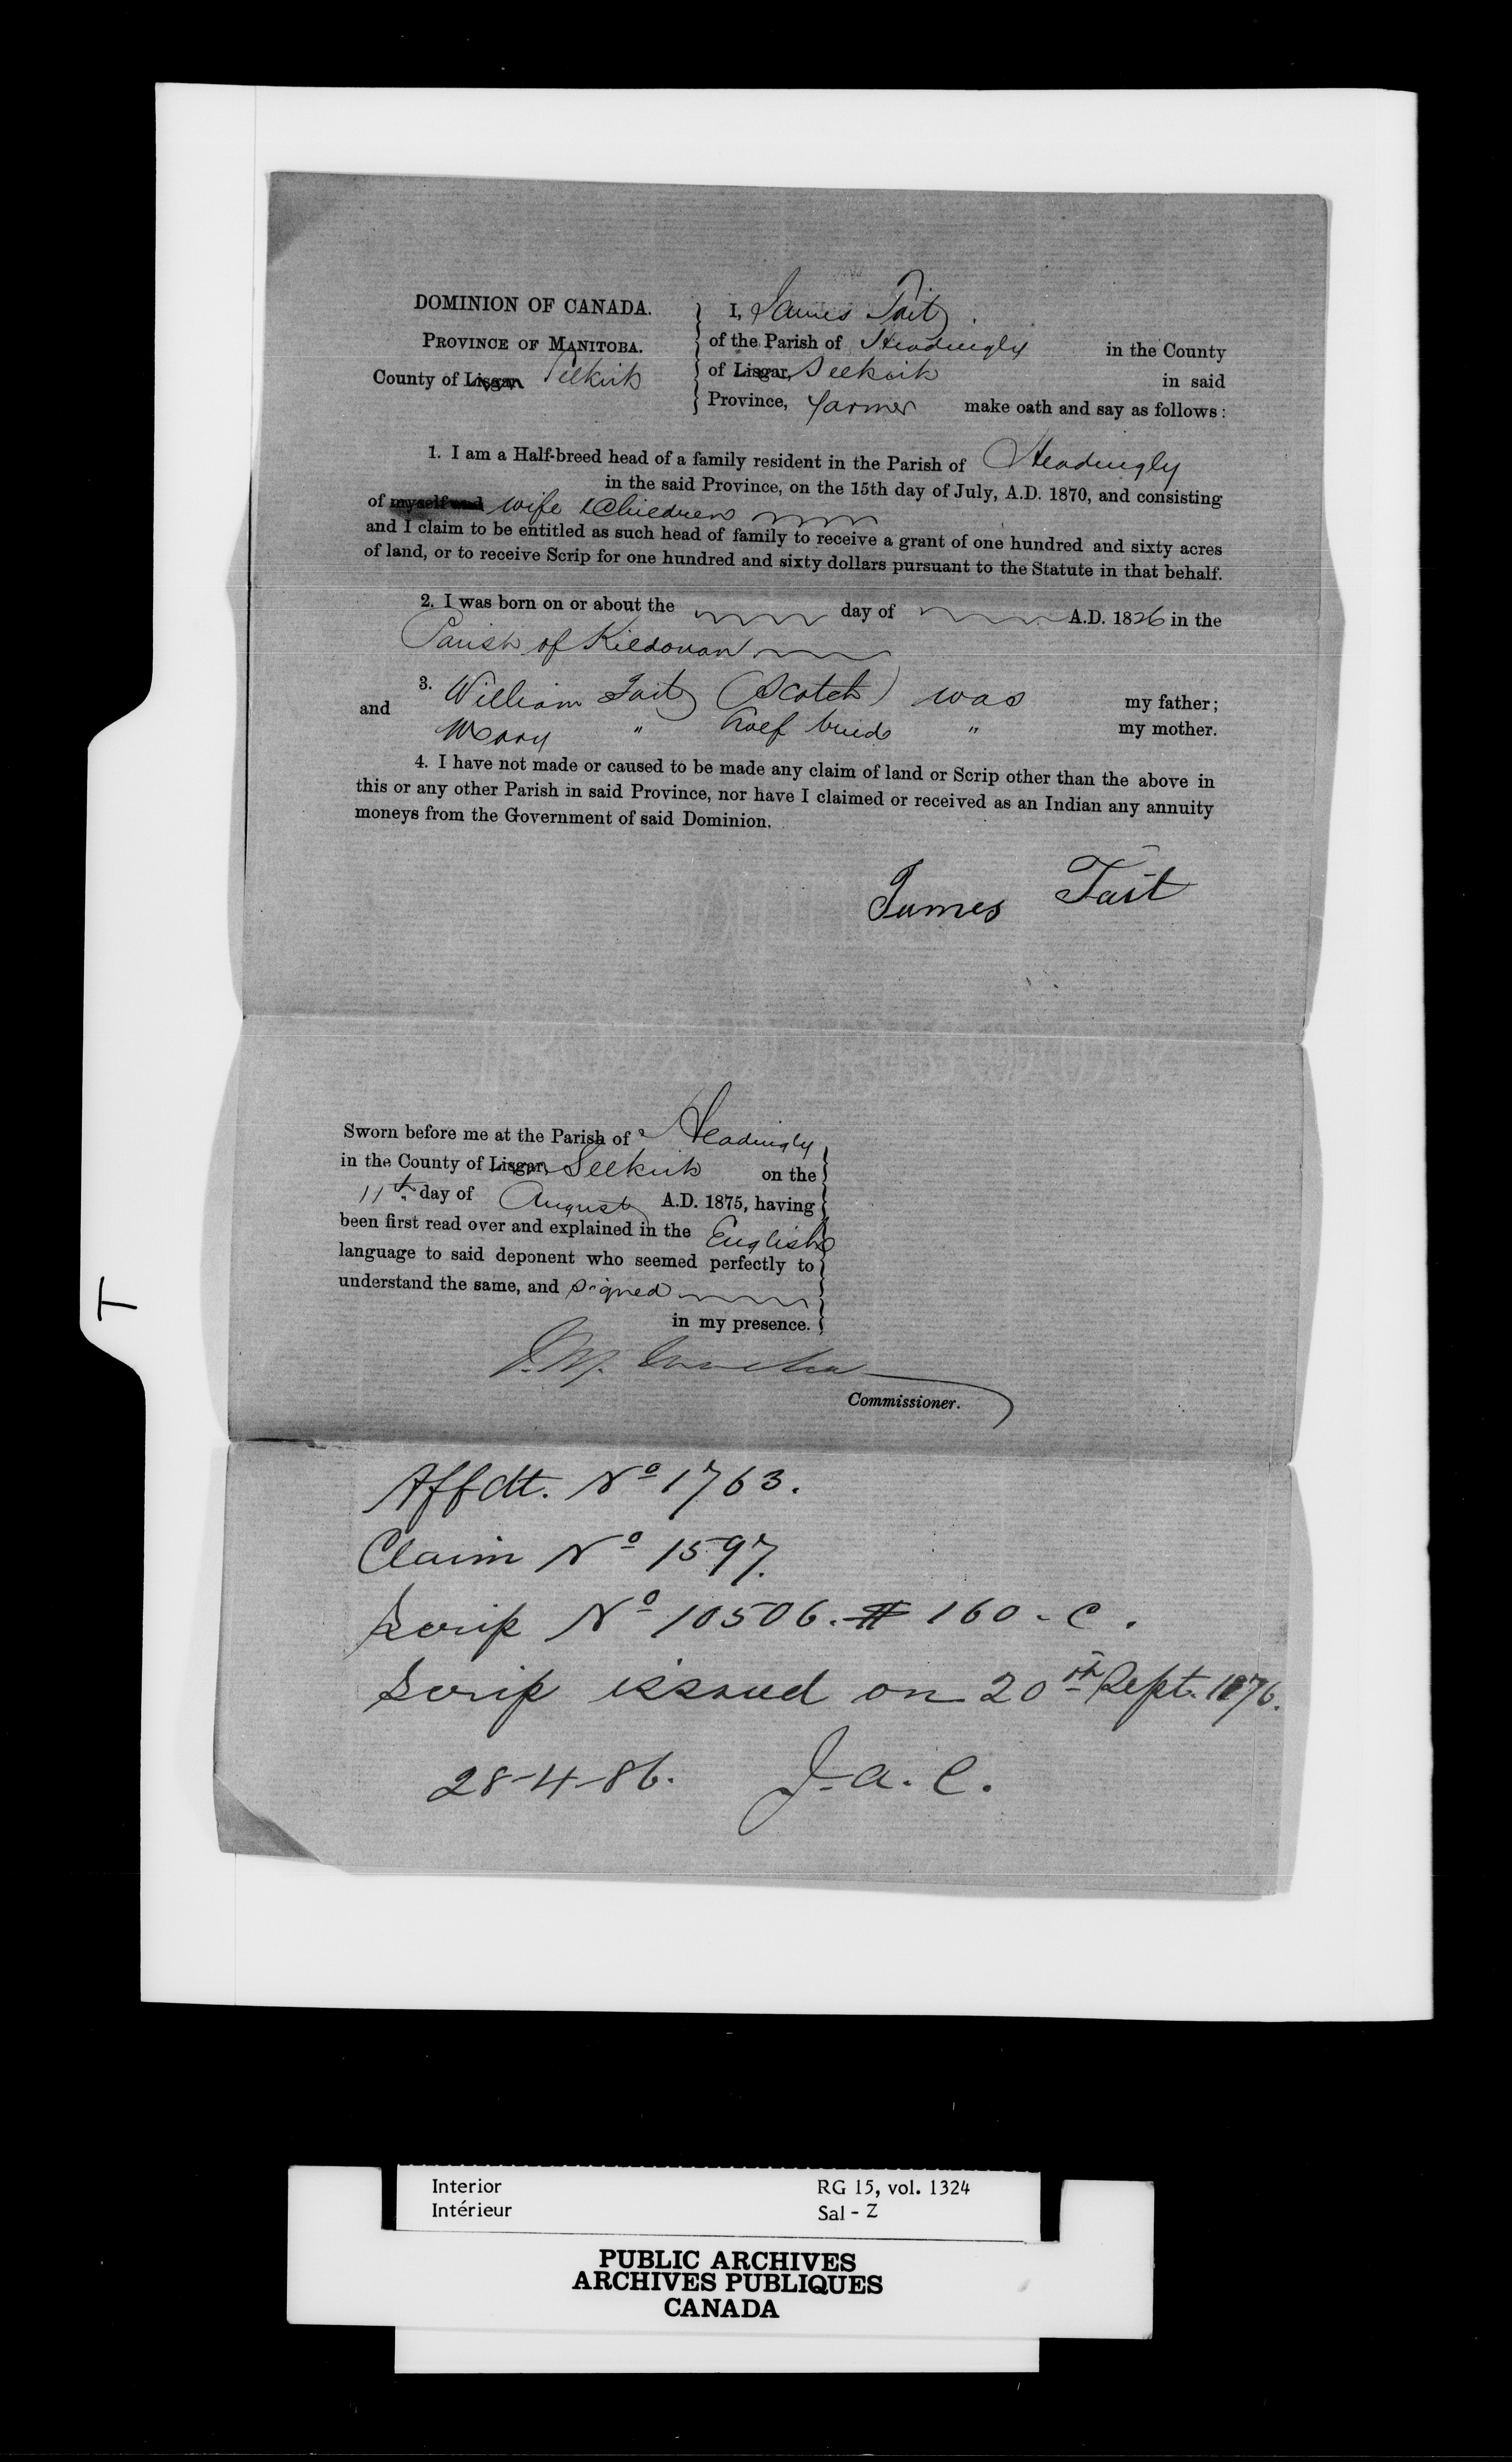 DOMINION OF CANADA.
PROVINCE OF MANITOBA.
County of Lisgar Selkirk
I, James Tait
of the Parish of Headingly in the County
of Lisgar, Selkirk in said
Province, farmer make oath and say as follows:
1. I am a Half-breed head of a family resident in the Parish of Headingly
in the said Province, on the 15th day of July, A.D. 1870, and consisting
of myself and wife & Children
and I claim to be entitled as such head of family to receive a grant of one hundred and sixty acres
of land, or to receive Scrip for one hundred and sixty dollars pursuant to the Statute in that behalf.
2. I was born on or about the day of A.D. 1826 in the
Parish of Kildonan
3. William Tait (Scotch) was my father;
and Mary " half breed " my mother.
4. I have not made or caused to be made any claim of land or Scrip other than the above in
this or any other Parish in said Province, nor have I claimed or received as an Indian any annuity
moneys from the Government of said Dominion.
James Tait
Sworn before me at the Parish of Headingly
in the County of Lisgar, Selkirk on the
11th day of August A.D. 1875, having
been first read over and explained in the English
language to said deponent who seemed perfectly to
understand the same, and signed
in my presence.
Commissioner.
Affdt. No 1763.
Claim No 1597.
Scrip No 10506. $160.c.
Scrip issued on 20th Sept. 1876.
28-4-86. J.A.C.
T
Interior RG 15, vol. 1324
Intérieur Sal - Z
PUBLIC ARCHIVES
ARCHIVES PUBLIQUES
CANADA